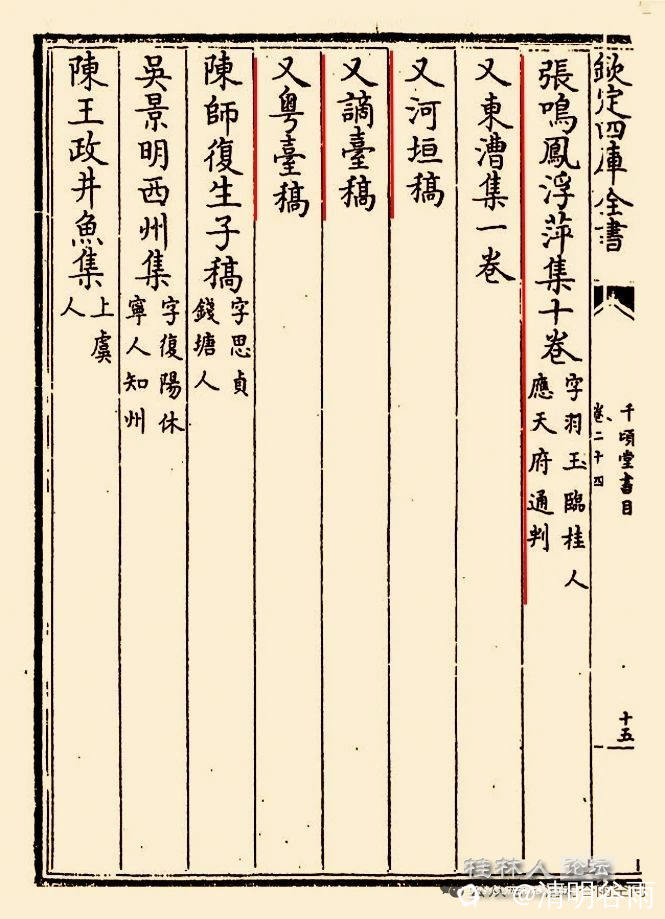 欽定四庫全書
千頃堂書目
卷二十四
十五
張鳴鳳浮萍集十卷
字羽玉臨桂人
應天府通判
又東漕集一卷
又河垣稿
又謫臺稿
又粵臺稿
陳師復生子稿
字思貞
錢塘人
吳景明西州集
字復陽休
寧人知州
陳王政井魚集
上虞
人
桂林人论坛
@清明谷雨